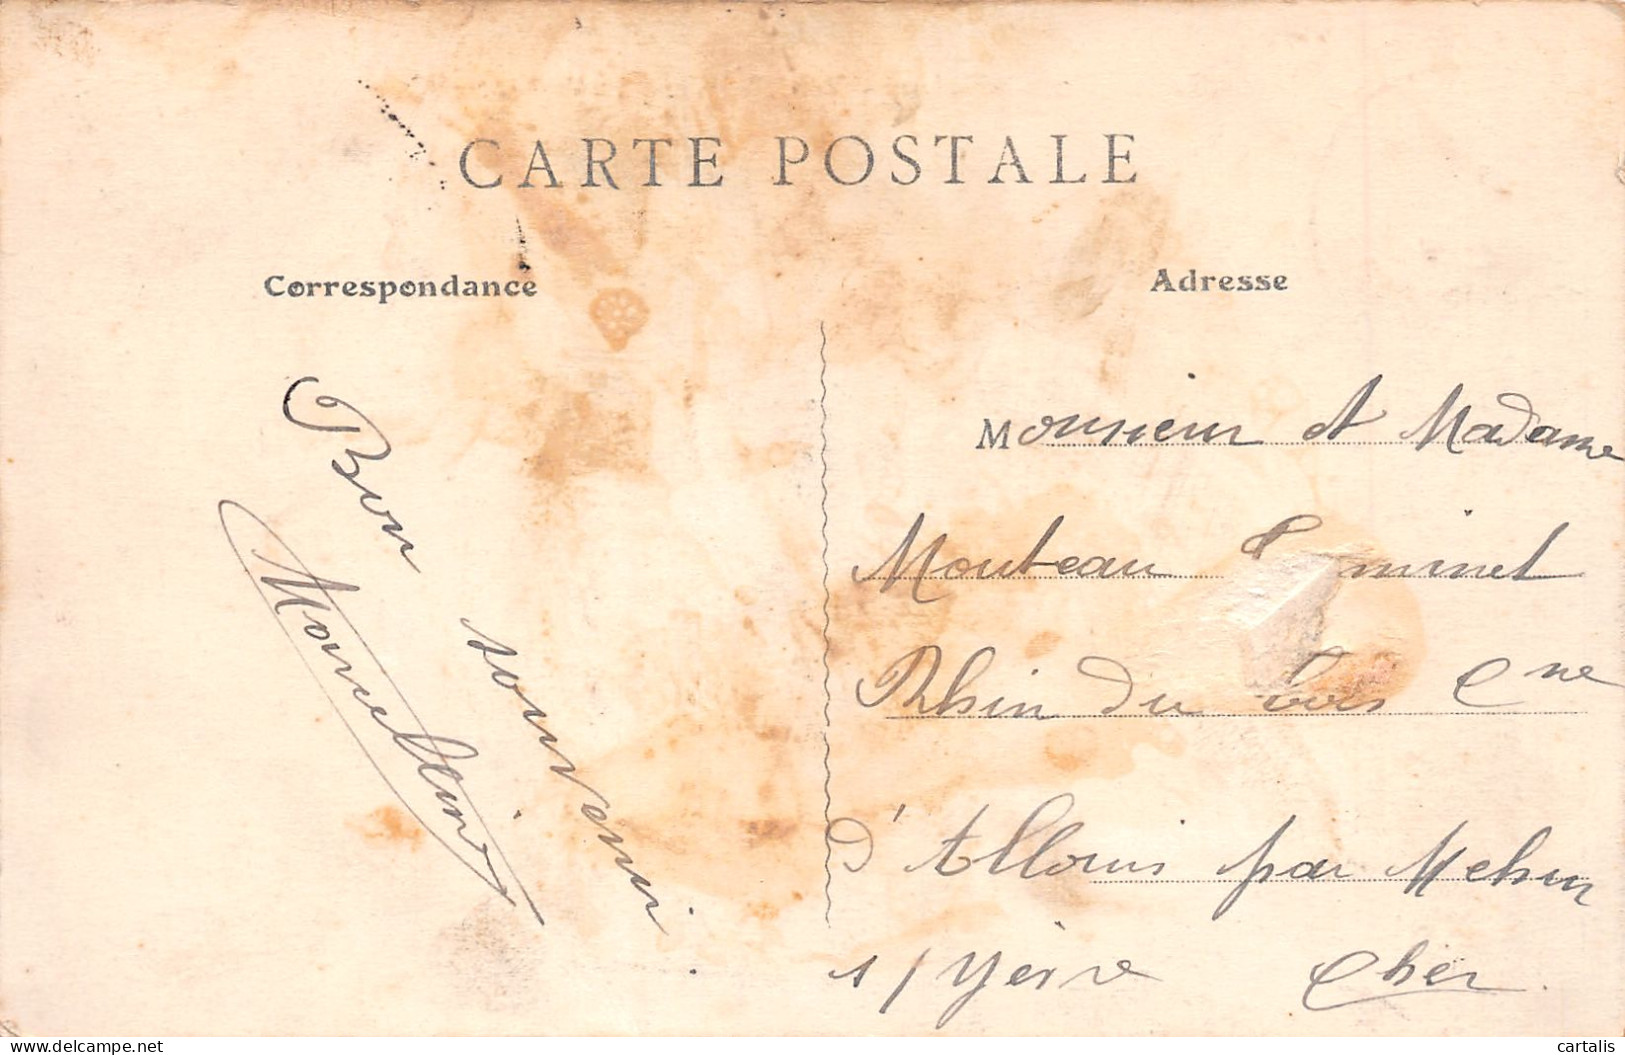 CARTE POSTALE
Correspondance
Adresse
Bon
souvenir
Marcelline
Monsieur et Madame
Mouteau
Rhin du bois Cne
d'Allouis par Mehun
s/ Yèvre Cher.
cartalis
www.delcampe.net